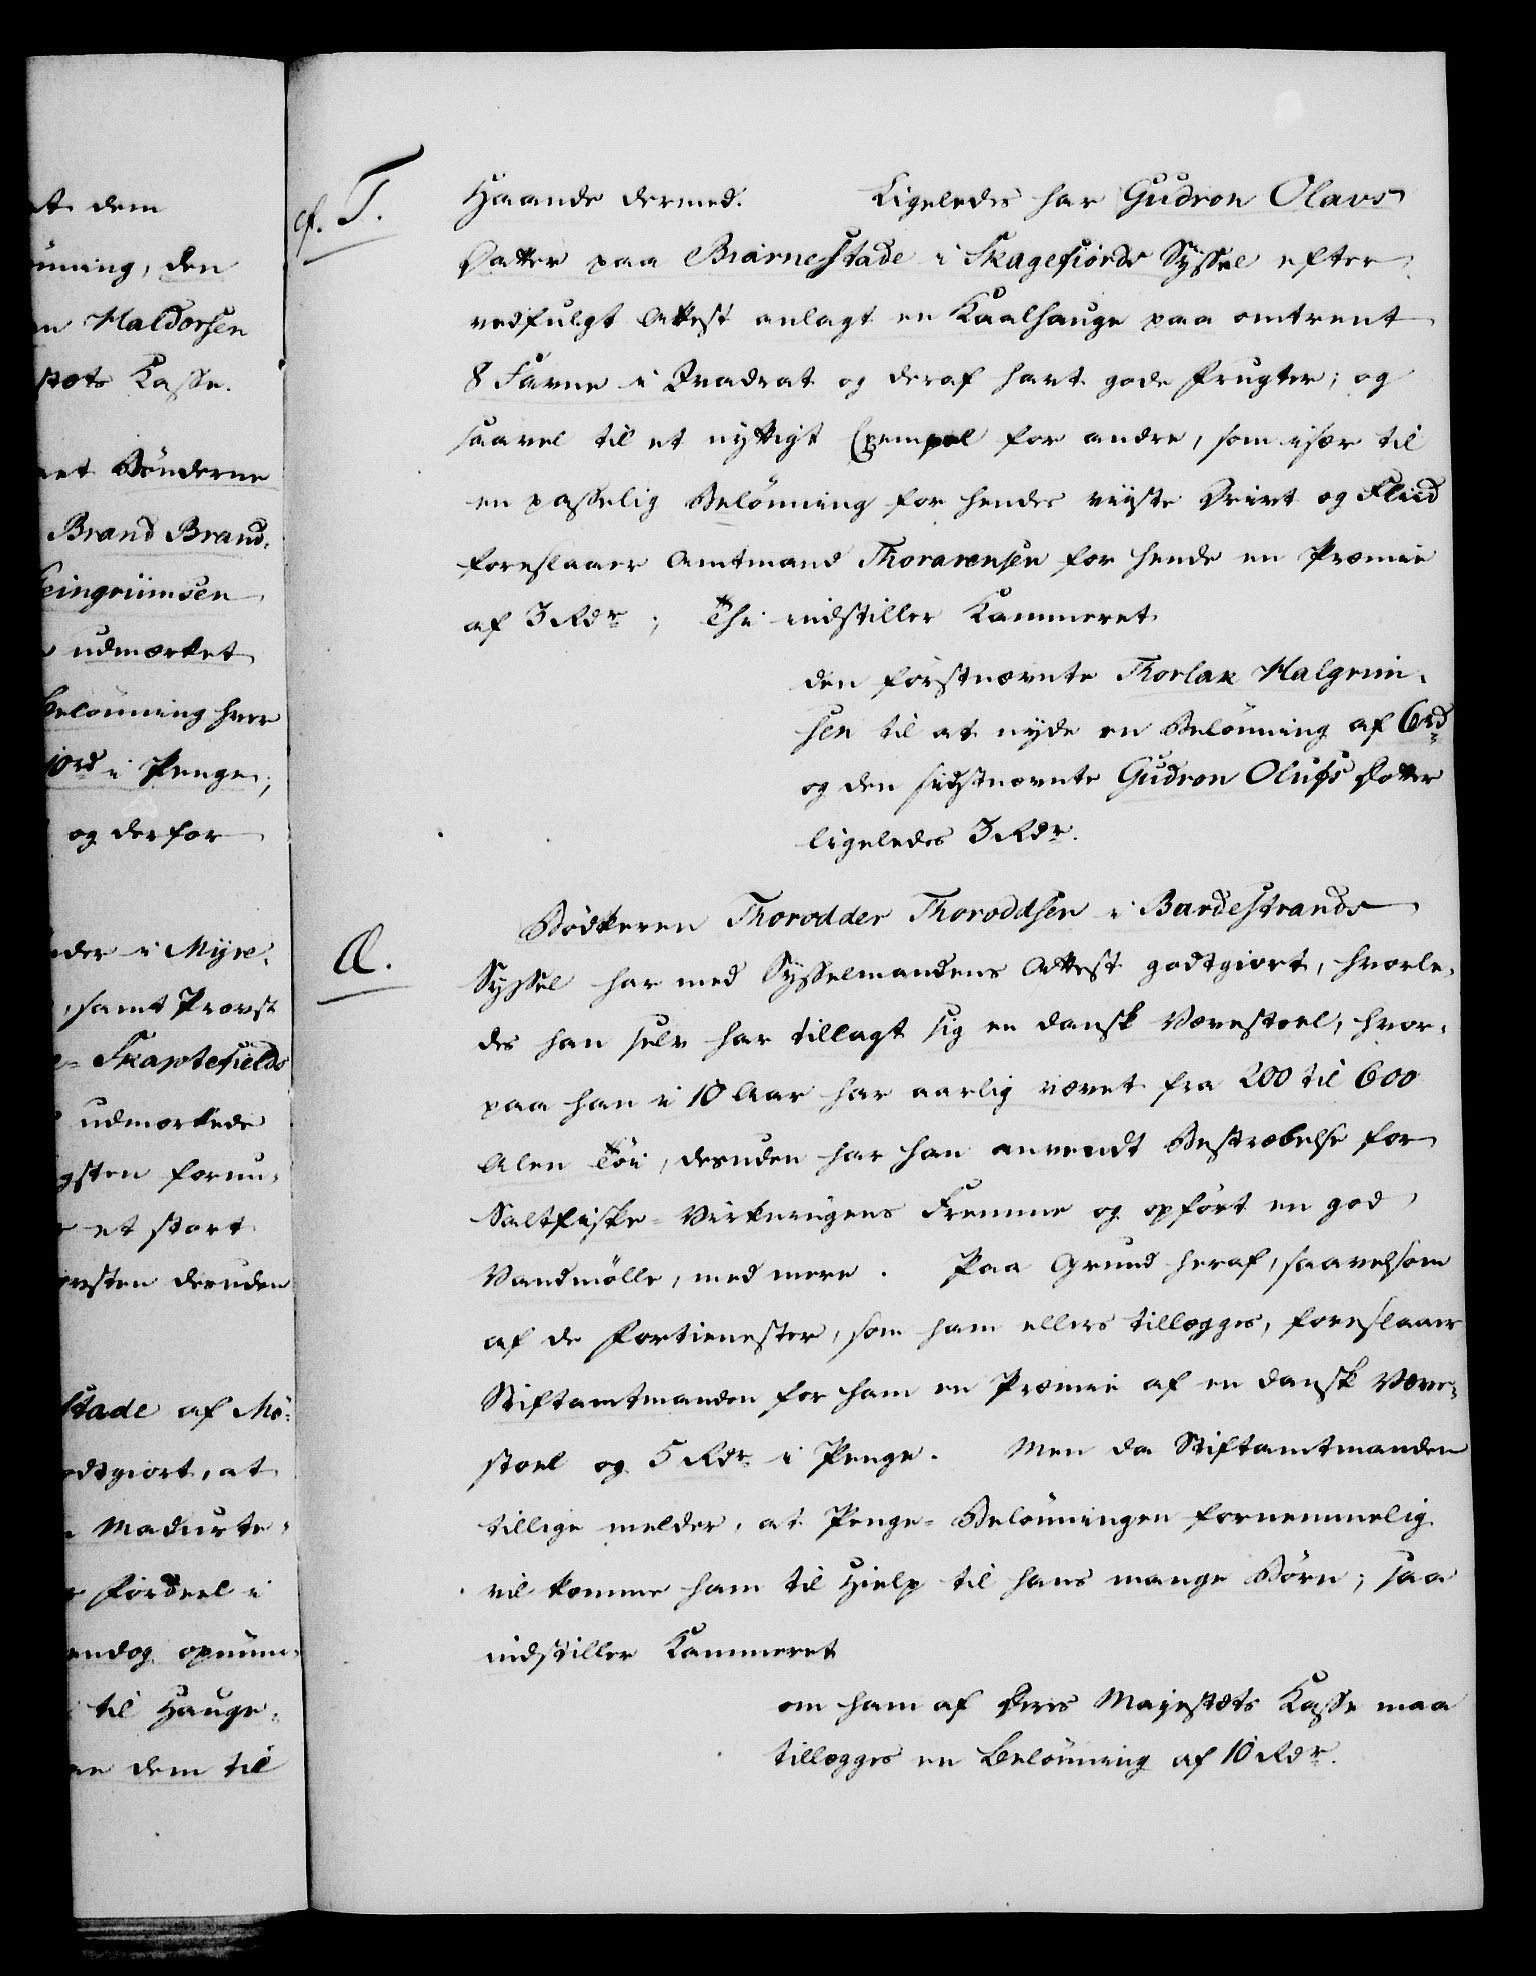 et dem
önning, den
en Haldorsen
stæts Casse.
net Bönderne
Brand Brand-
teingriimsen
udmærket
Belönning hver
10rd i Penge,
og derfor
nder i Myre-
, samt Provst
e= Skaptefields
udmærkede
gsten forun-
et stort
vsten desuden
stade af Mö-
odtgiort, at
Madurte-
Fordeel i
endog opmun-
til Hauge-
dem til
cf. T.
Haande dermed. Ligeledes har Gudron Olavs
Datter paa Biarnestade i Skagefiords Syssel efter
vedfulgt Attest anlagt en Kaalhauge paa omtrent
8 Favne i Qvadrat og deraf havt gode Frugter; og
saavel til et nyttigt Exempel for andre, som især til
en passelig Belönning for hendes viiste Drivt og Fliid
foreslaaer Amtmand Thorarensen for hende en Præmie
af 3 Rdr; Thi indstiller Kammeret
den förstnævnte Thorlak Halgrim-
sen til at nyde en Belönning af 6rd
og den sidstnævnte Gudron Olufs Datter
ligeledes 3 Rdr.
Q.
Bödkeren Thorodder Thoroddsen i Bardestrands
Syssel har med Sysselmandens Attest godtgiort, hvorle-
des han selv har tillagt sig en dansk Væverstoel, hvor-
paa han i 10 Aar har aarlig vævet fra 200 til 600
Alen Töi, desuden har han anvendt Bestræbelse for
Saltfiske-Virkningens Fremme og opfört en god
Vandmölle, med mere. Paa Grund heraf, saavelsom
af de Fortienester, som ham ellers tillægges, foreslaaer
Stiftamtmanden for ham en Præmie af en dansk Væver-
stoel og 5 Rdr i Penge. Men da Stiftamtmanden
tillige melder, at Penge-Belönningen fornemmelig
vil komme ham til Hielp til hans mange Börn; saa
indstiller Kammeret
om ham af Deres Majestæts Kasse maa
tillægges en Belönning af 10 Rdr.